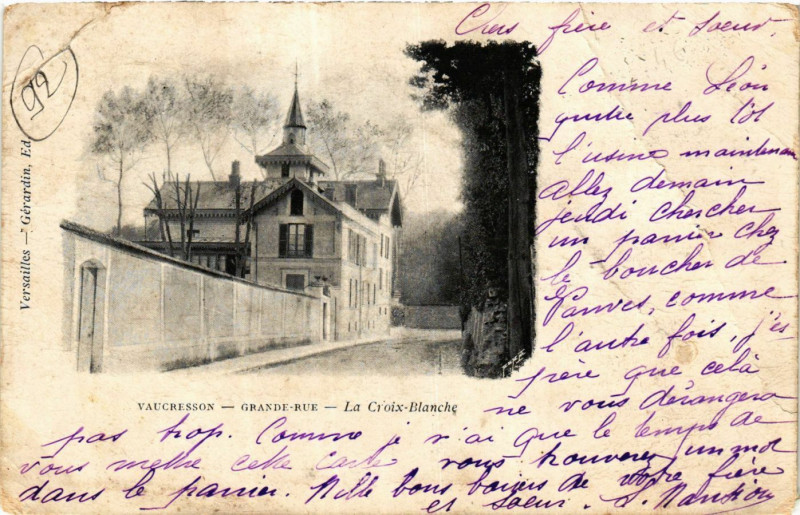 92
Versailles — Gérardin, Ed
Chers frère et soeur.
Comme Léon
quitte plus tôt
l'usine maintenan
allez demain
jeudi chercher
un panier chez
le boucher de
Vanves, comme
l'autre fois, j'es
père que celà
ne vous dérangera
VAUCRESSON — GRANDE-RUE — La Croix-Blanche
pas trop. Comme je n'ai que le temps de
vous mettre cette carte vous trouverez un mot
dans le panier. Mille bons baisers de votre frère
et soeur.